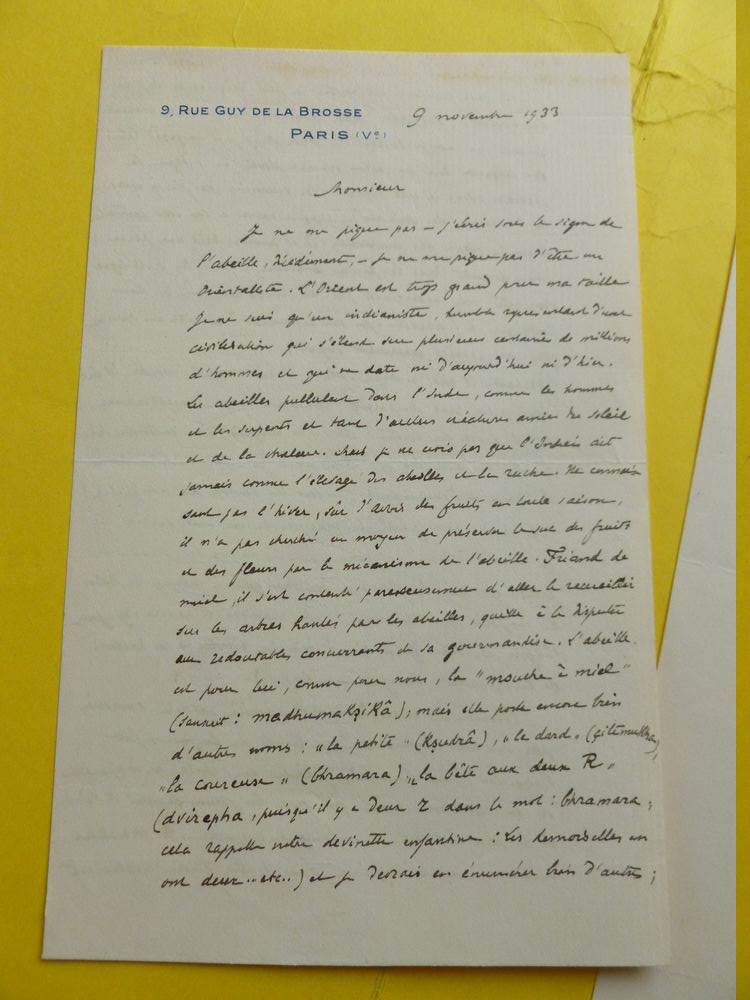 9, RUE GUY DE LA BROSSE
PARIS (Ve)
9 novembre 1933
Monsieur
Je ne me pique pas – j'écris sous le signe de
l'abeille, évidemment, – je ne me pique pas d'être un
Orientaliste. L'Orient est trop grand pour ma taille
Je ne suis qu'un indianiste, humble représentant d'une
civilisation qui s'étend sur plusieurs centaines de millions
d'hommes et qui ne date ni d'aujourd'hui ni d'hier.
Les abeilles pullulent dans l'Inde, comme les hommes
et les serpents et tant d'autres créatures amies du soleil
et de la chaleur. Mais je ne crois pas que l'Indien ait
jamais connu l'élevage des abeilles et la ruche. Ne connais
sant pas l'hiver, sûr d'avoir des fruits en toute saison,
il n'a pas cherché un moyen de préserver le suc des fruits
et des fleurs par le mécanisme de l'abeille. Friand de
miel, il s'est contenté paresseusement d'aller le recueillir
sur les arbres hantés par les abeilles, quitte à le disputer
aux redoutables concurrents de sa gourmandise. L'abeille
est pour lui, comme pour nous, la "mouche à miel"
(sanscrit : madhumakṣikâ); mais elle porte encore bien
d'autres noms : "la petite" (kṣudrâ), "le dard" (çitimukha),
"la coureuse" (bhramara) "la bête aux deux R"
(dvirepha, puisqu'il y a deux r dans le mot : bhramara;
cela rappelle notre devinette enfantine : Les demoiselles en
ont deux..etc..) et je devrais en énumérer bien d'autres;